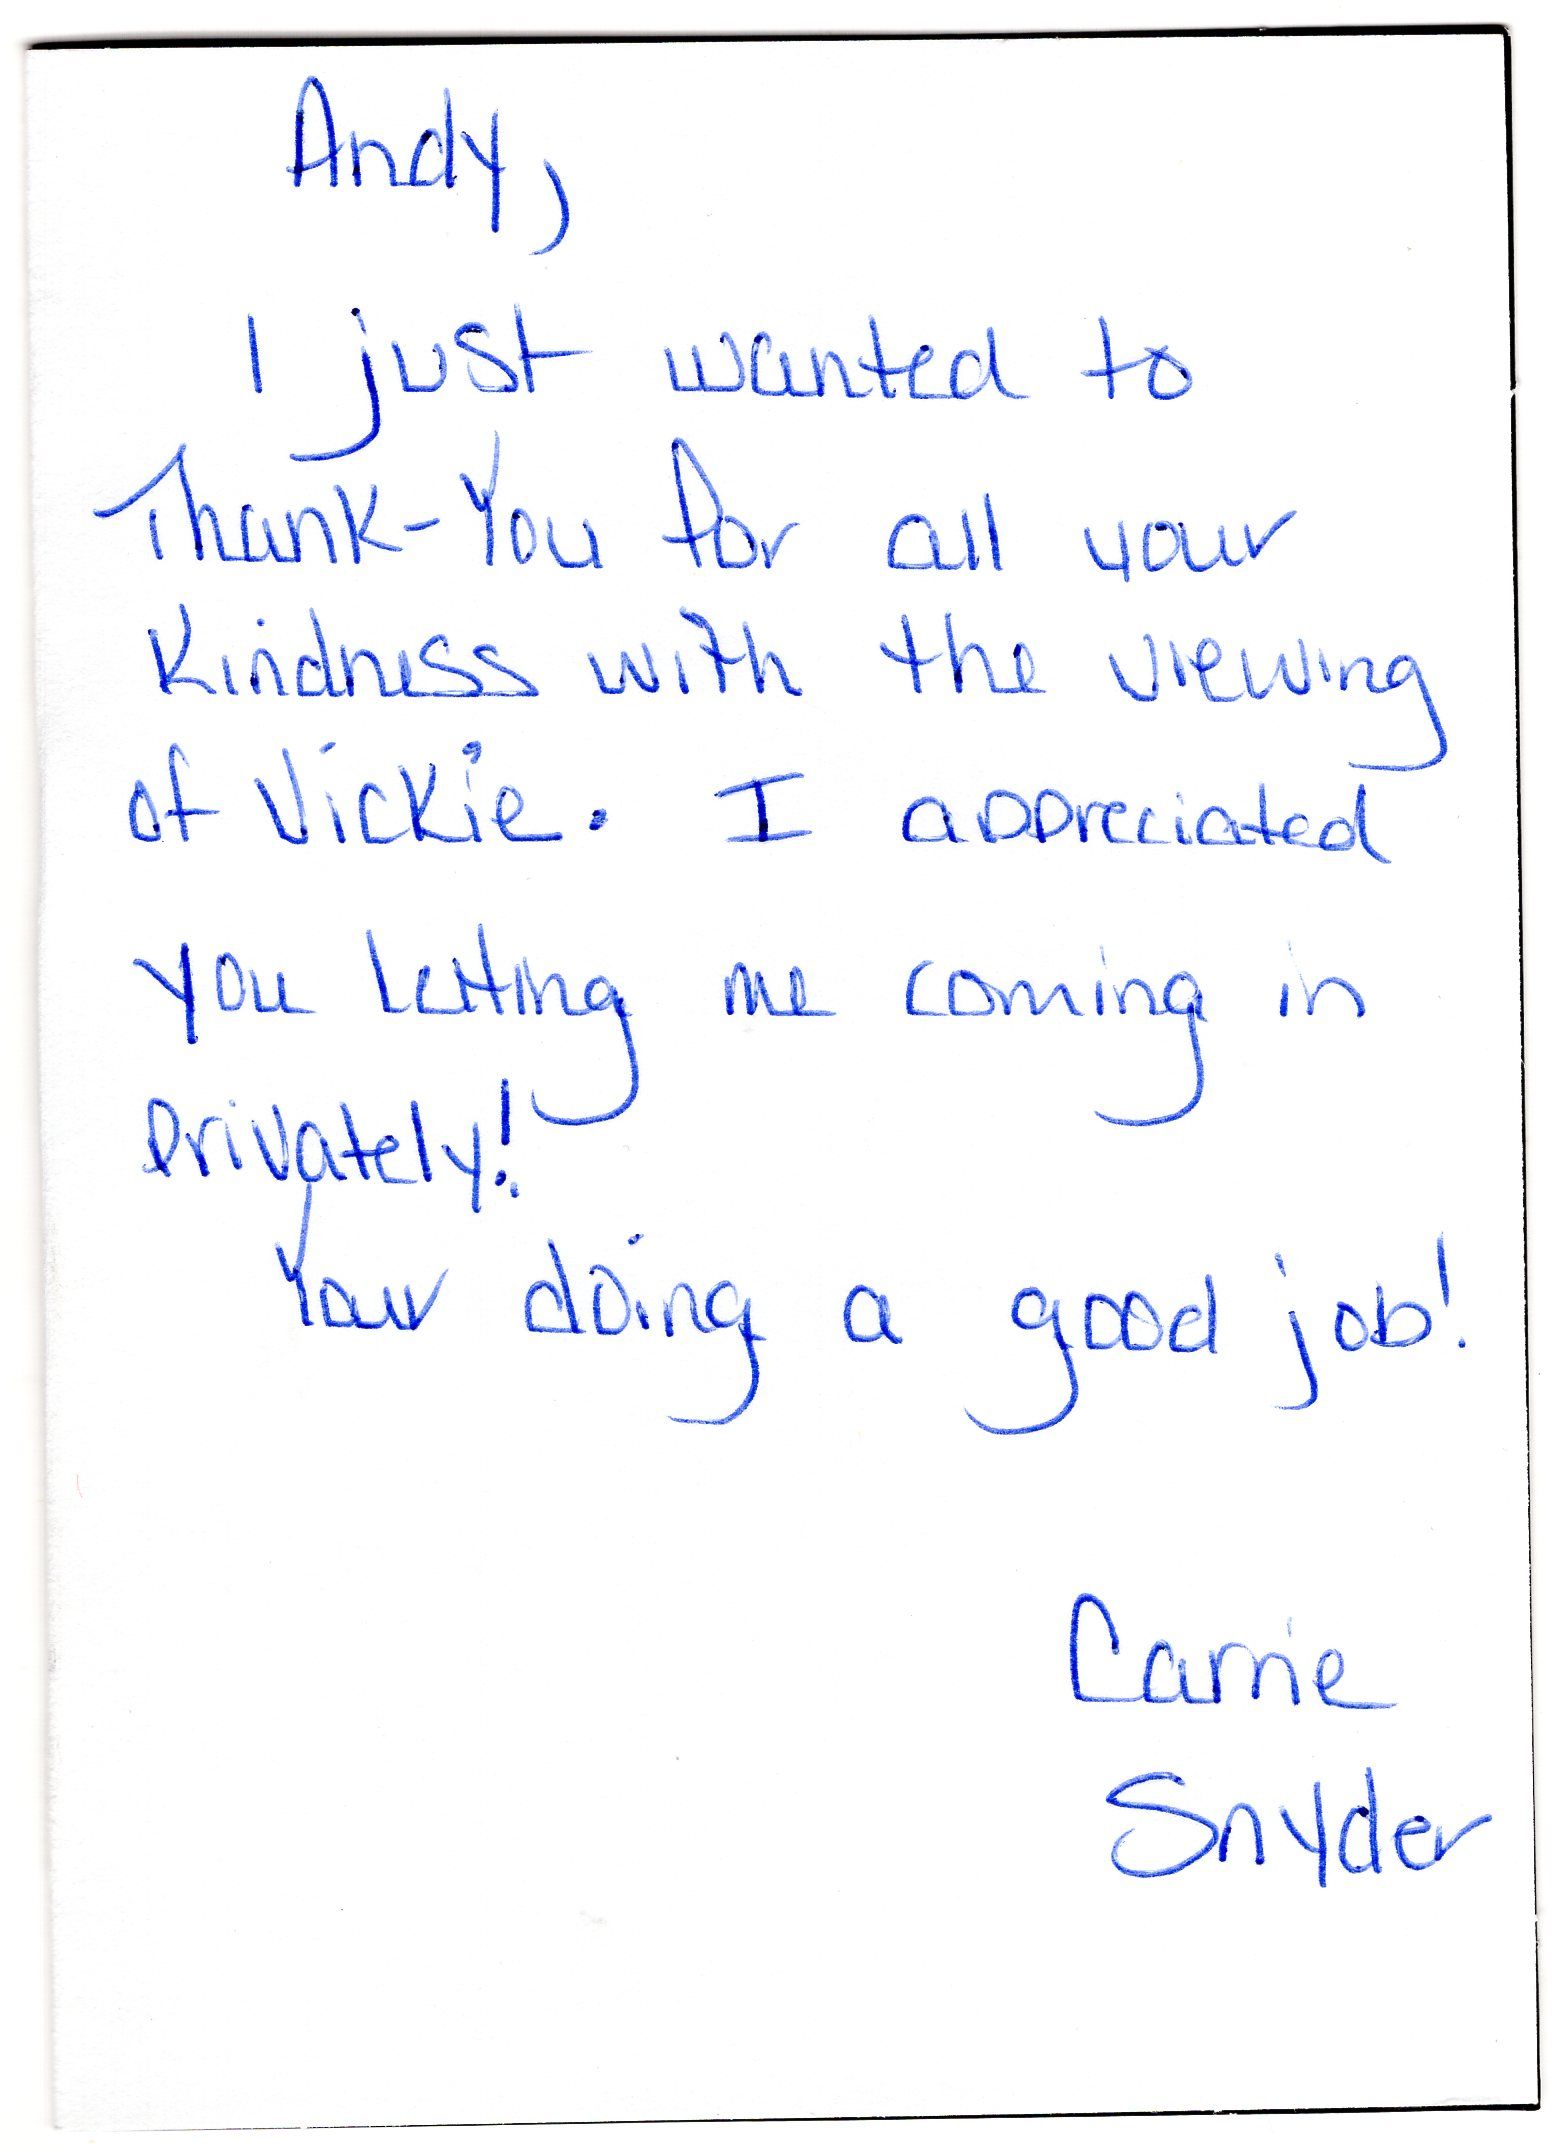 Andy,
I just wanted to
Thank-You for all your
Kindness with the viewing
of Vickie. I appreciated
you letting me coming in
privately!
Your doing a good job!
Carrie
Snyder